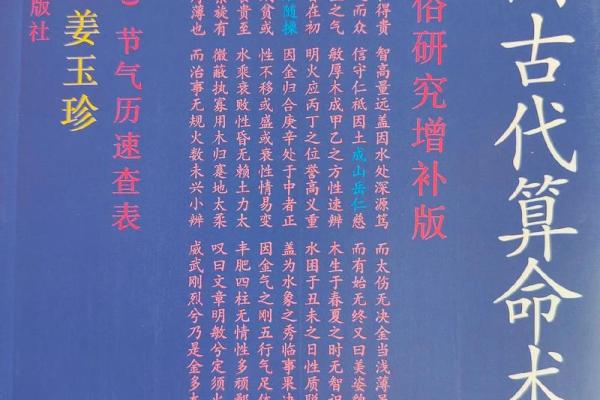 古代算命术
俗研究增补版
得贵 智高量远盖因水处深源笃 而太伤无决金当浅薄
而众 信守仁祗因土成山岳仁慈 而有始无终又曰美姿貌
之气 敏厚木成甲乙之方性速辨 木生于春夏之时无智识
在初 明火应丙丁之位誉高义重 水困于丑未之日性质
随操 因金归合庚辛处于中者正 盖为水象之秀临事果决
或贵 性不移或盛或衰性情易变 因金气之刚五行气足体
贵至 水乘衰败性昏无赖土力太 丰肥四柱无情性多顽鄙
旋有 微蔽执寡用木归蹇地太柔 叹曰文章明敏兮定须火
薄也 而治事无规火数未兴小辨 威武刚烈兮乃是金多
节气历速查表
姜玉珍
版社